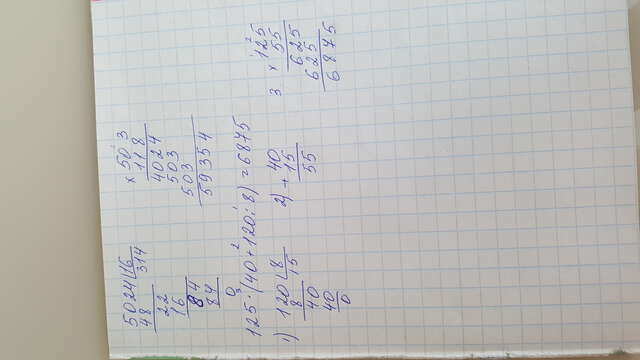 5024 16 × 503
48 314 118
22 4024
16 503
84 503
84 59354
0
125 · (40 + 120 : 8) = 6875
3 2 1
1) 120 8 2) + 40 3 × 125
8 15 15 55
40 55 625
40 625
0 6875